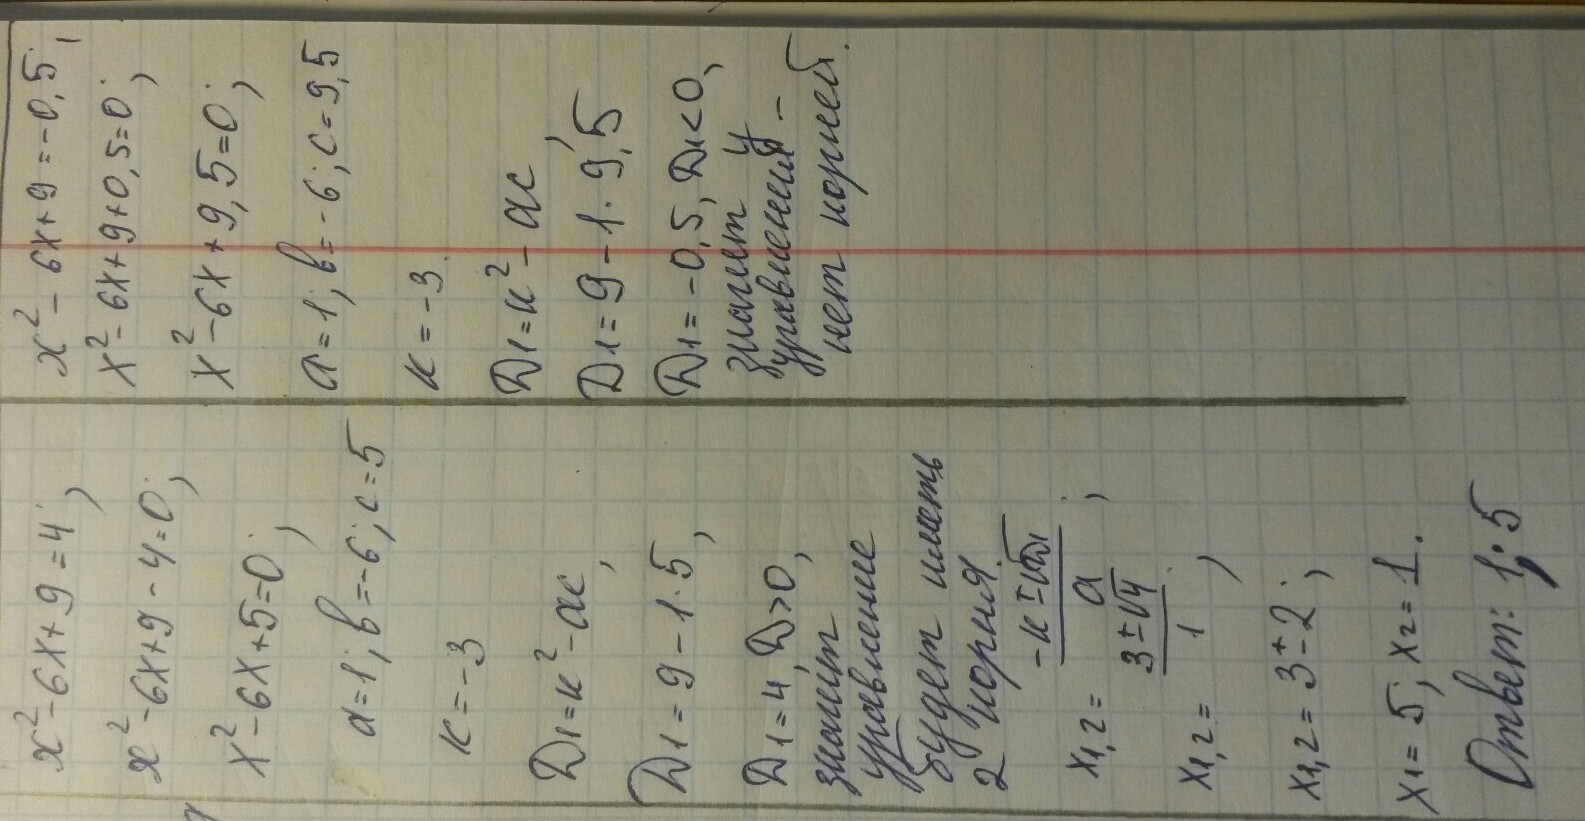 x² - 6x + 9 = 4;
x² - 6x + 9 - 4 = 0;
x² - 6x + 5 = 0;
a = 1; b = -6; c = 5
к = -3
D₁ = к² - ac,
D₁ = 9 - 1 · 5,
D₁ = 4, D > 0,
значит
уравнение
будет иметь
2 корня.
x₁,₂ = (-к ± √D₁)/a;
x₁,₂ = (3 ± √4)/1;
x₁,₂ = 3 ± 2;
x₁ = 5; x₂ = 1.
Ответ: 1; 5
x² - 6x + 9 = -0,5;
x² - 6x + 9 + 0,5 = 0;
x² - 6x + 9,5 = 0;
a = 1; b = -6; c = 9,5
к = -3.
D₁ = к² - ac,
D₁ = 9 - 1 · 9,5
D₁ = -0,5, D₁ < 0,
значит у
уравнения -
нет корней.